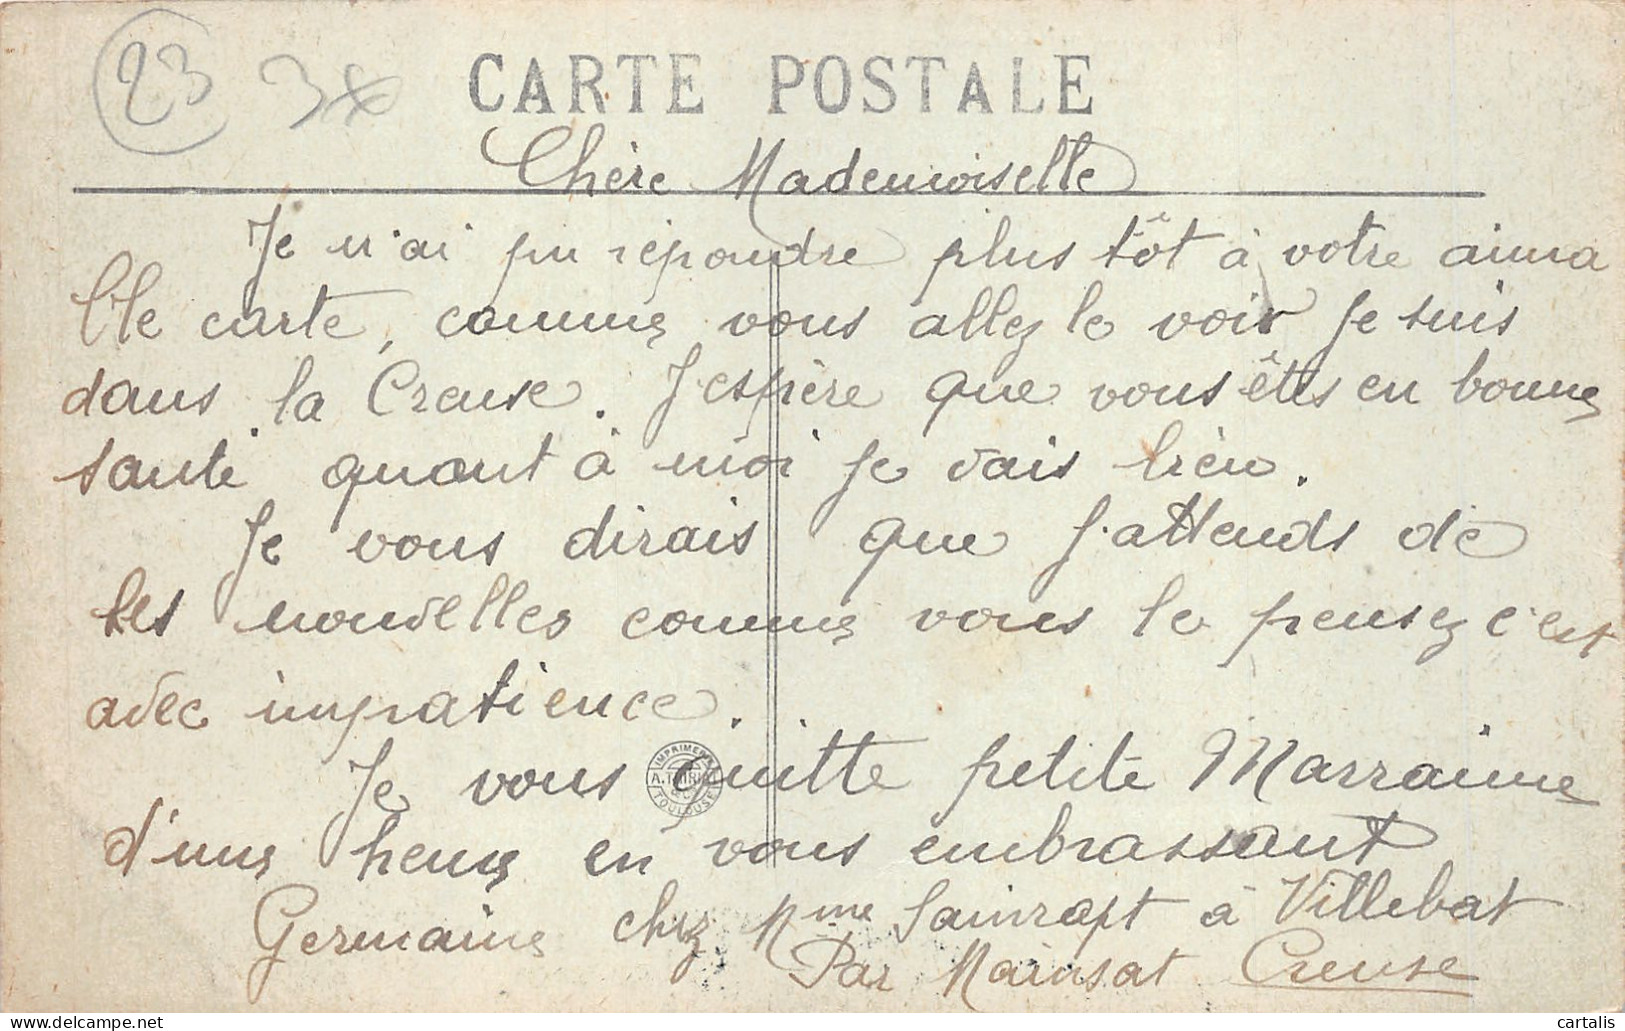 23 3x
CARTE POSTALE
Chère Mademoiselle
Je n'ai pu répondre plus tôt à votre aima
ble carte, comme vous allez le voir je suis
dans la Creuse. J'espère que vous êtes en bonne
santé quant à moi je vais bien.
Je vous dirais que j'attends de
tes nouvelles comme vous le pensez c'est
avec impatience.
Je vous quitte petite Marraine
d'une heure en vous embrassant
Germaine chez Mme Sainrapt à Villebat
Par Mainsat Creuse
IMPRIMERIE
TOULOUSE
cartalis